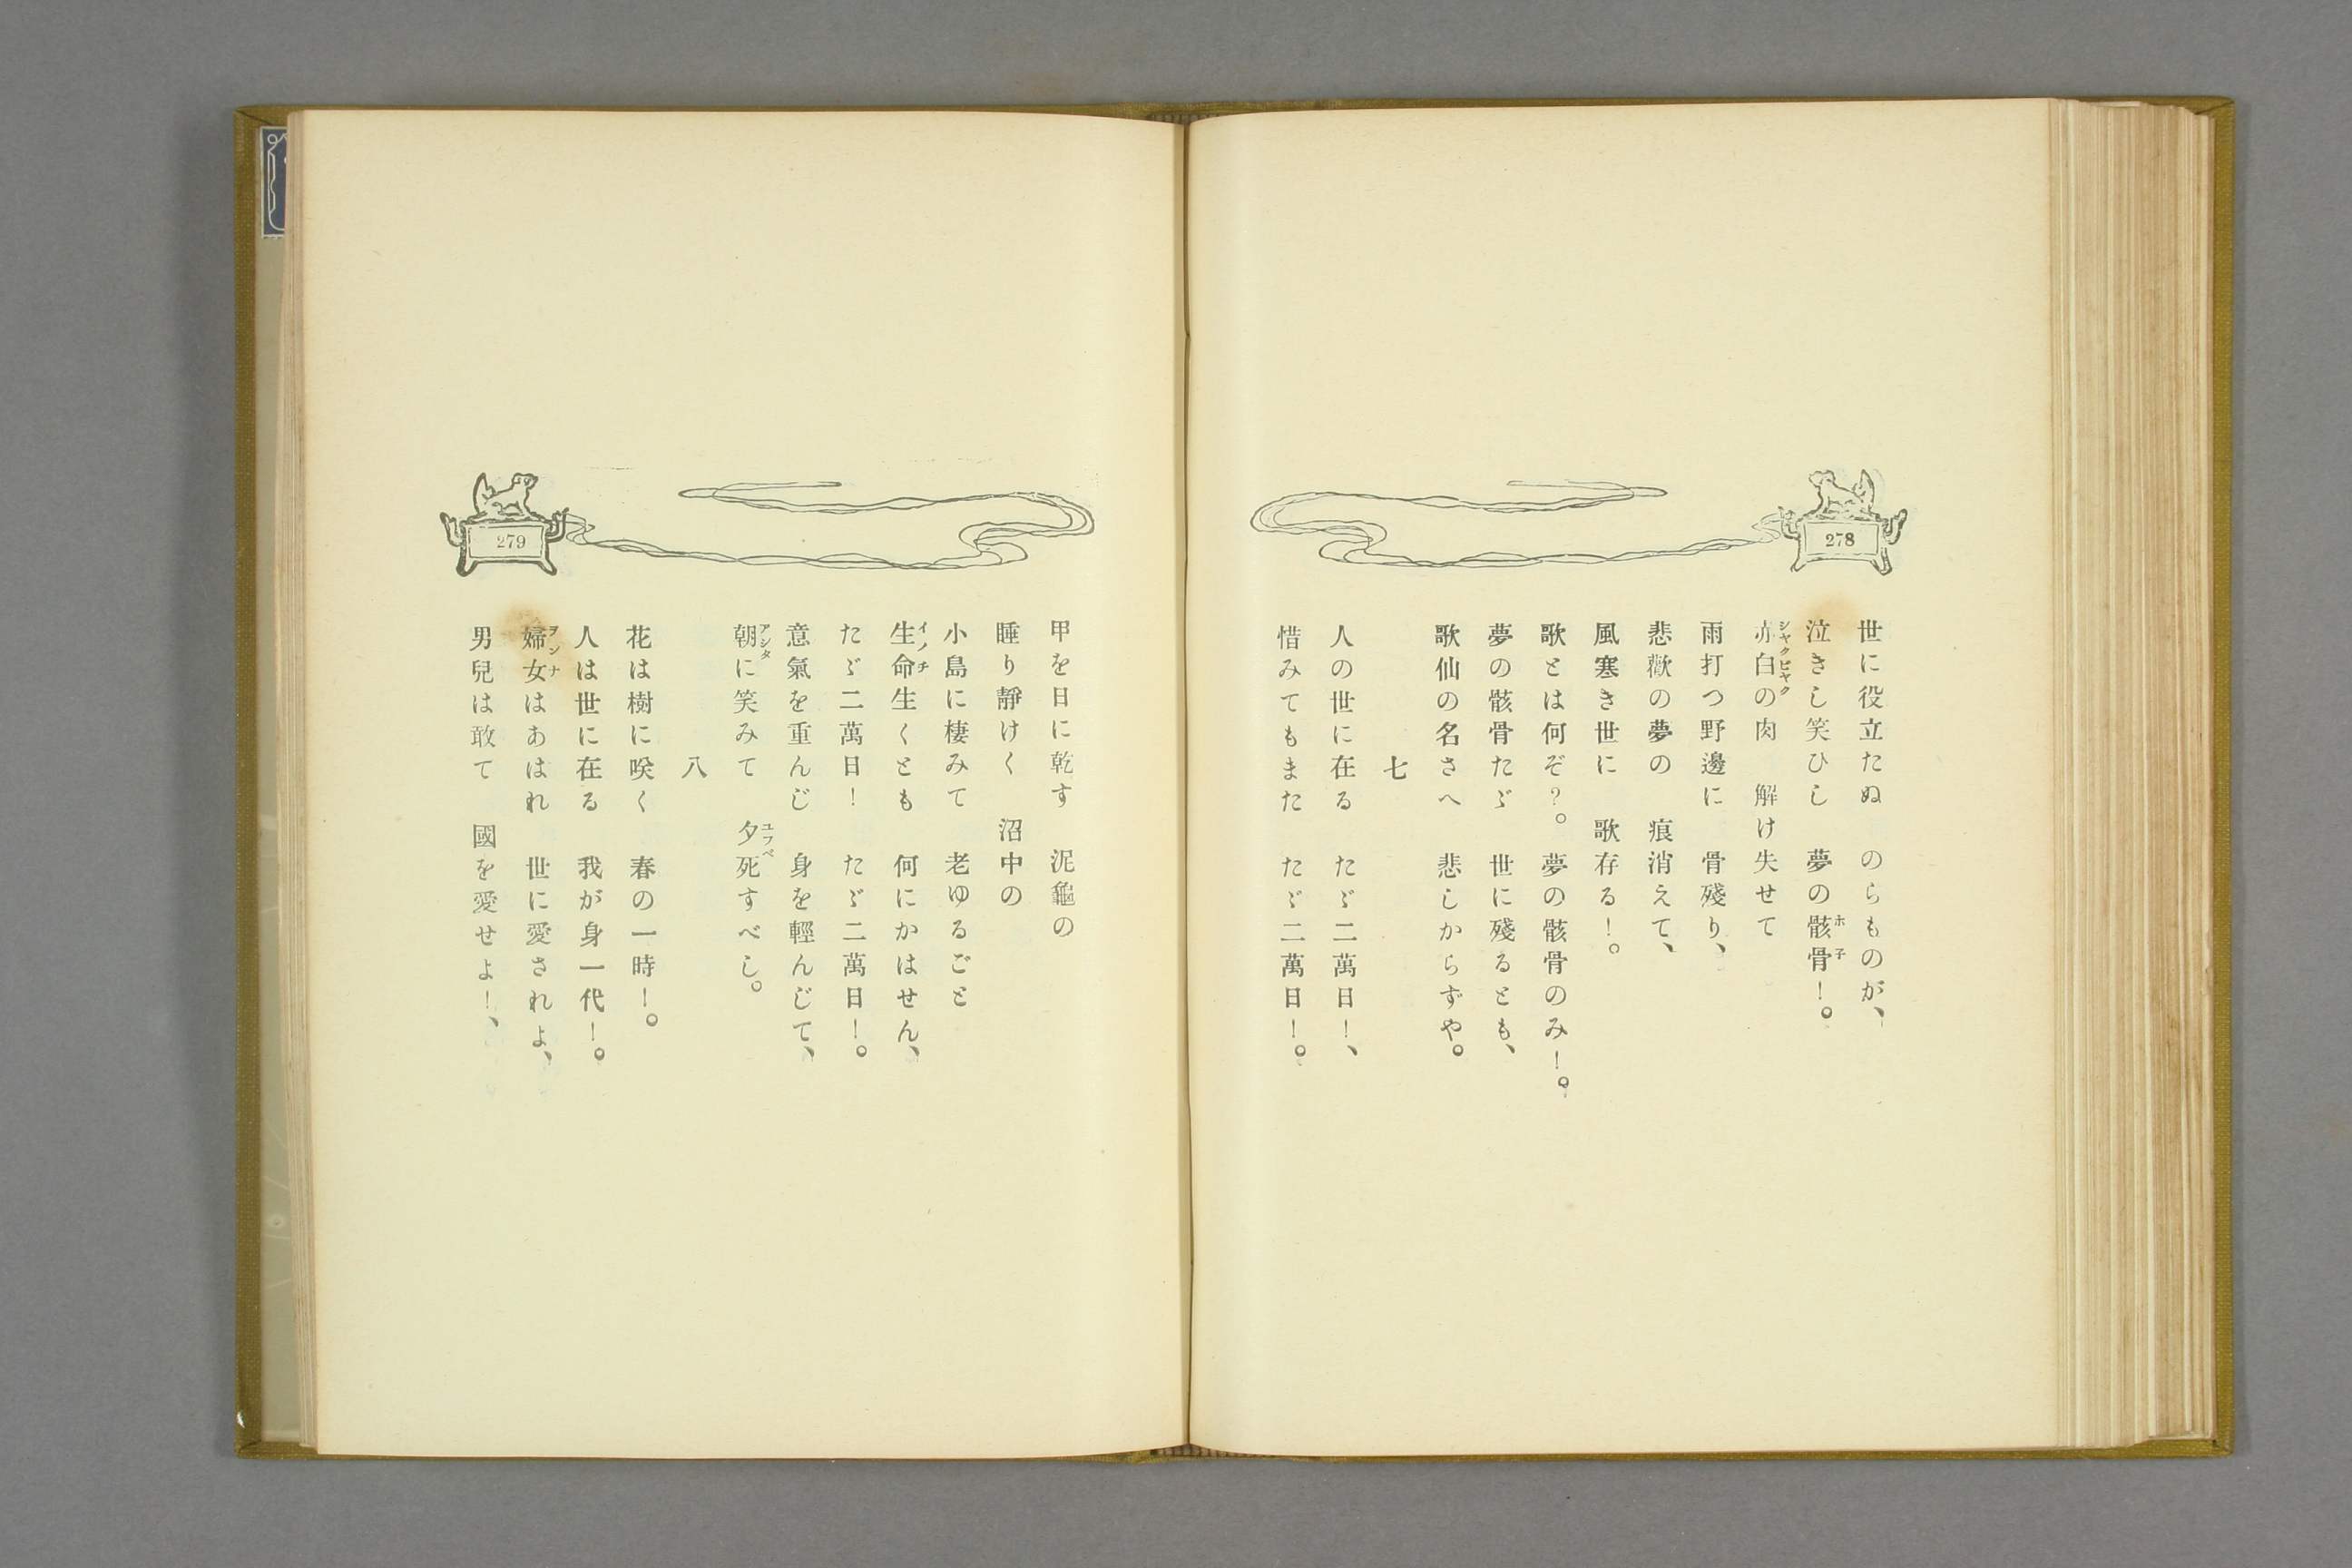 278
世に役立たぬ　のらものが、
泣きし笑ひし　夢の骸骨！。
赤白の肉　解け失せて
雨打つ野邊に　骨殘り、
悲歡の夢の　痕消えて、
風寒き世に　歌存る！。
歌とは何ぞ？。夢の骸骨のみ！。
夢の骸骨たゞ　世に殘るとも、
歌仙の名さへ　悲しからずや。
七
人の世に在る　たゞ二萬日！、
惜みてもまた　たゞ二萬日！。
279
甲を日に乾す　泥龜の
睡り靜けく　沼中の
小島に棲みて　老ゆるごと
生命生くとも　何にかはせん、
たゞ二萬日！　たゞ二萬日！。
意氣を重んじ　身を輕んじて、
朝に笑みて　夕死すべし。
八
花は樹に咲く　春の一時！。
人は世に在る　我が身一代！。
婦女はあはれ　世に愛されよ、
男兒は敢て　國を愛せよ！、